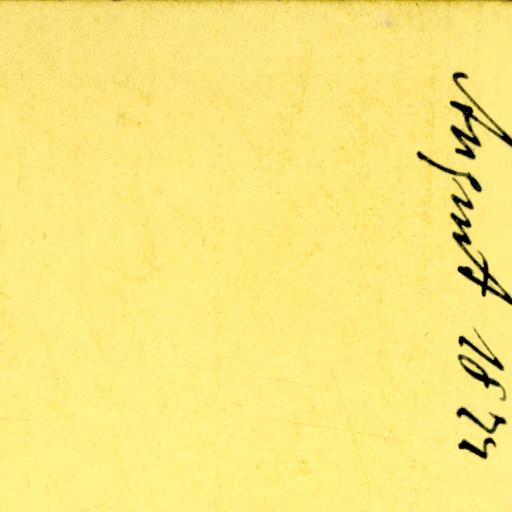 August 1874